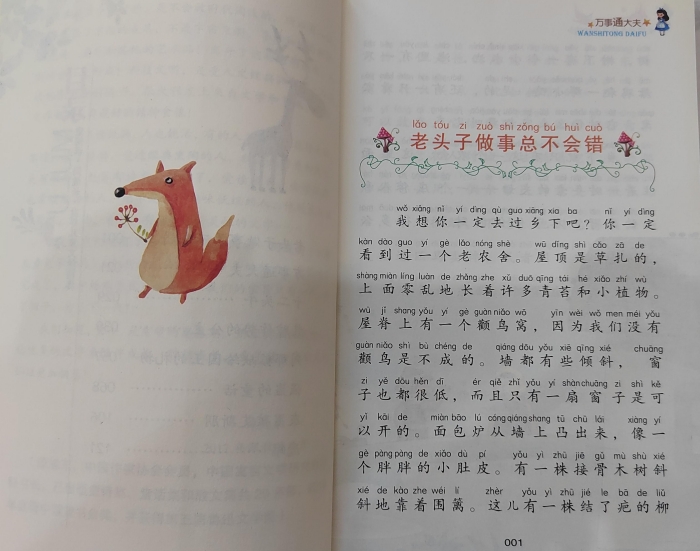 万事通大夫
WANSHITONG DAIFU
lǎo tóu zi zuò shì zǒng bú huì cuò
老头子做事总不会错
wǒ xiǎng nǐ yí dìng qù guo xiāng xia ba nǐ yí dìng
我想你一定去过乡下吧？你一定
kàn dào guo yí gè lǎo nóng shè wū dǐng shì cǎo zā de
看到过一个老农舍。屋顶是草扎的，
shàng miàn líng luàn de zhǎng zhe xǔ duō qīng tái hé xiǎo zhí wù
上面零乱地长着许多青苔和小植物。
wū jǐ shang yǒu yí gè guàn niǎo wō yīn wèi wǒ men méi yǒu
屋脊上有一个颧鸟窝，因为我们没有
guàn niǎo shì bù chéng de qiáng dōu yǒu xiē qīng xié chuāng
颧鸟是不成的。墙都有些倾斜，窗
zi yě dōu hěn dī ér qiě zhǐ yǒu yí shàn chuāng zi shì kě
子也都很低，而且只有一扇窗子是可
yǐ kāi de miàn bāo lú cóng qiáng shang tū chū lái xiàng yí
以开的。面包炉从墙上凸出来，像一
gè pàng pàng de xiǎo dù pí yǒu yì zhū jiē gǔ mù shù xié
个胖胖的小肚皮。有一株接骨木树斜
xié de kào zhe wéi lí zhèr yǒu yì zhū jiē le bā de liǔ
斜地靠着围篱。这儿有一株结了疤的柳
001